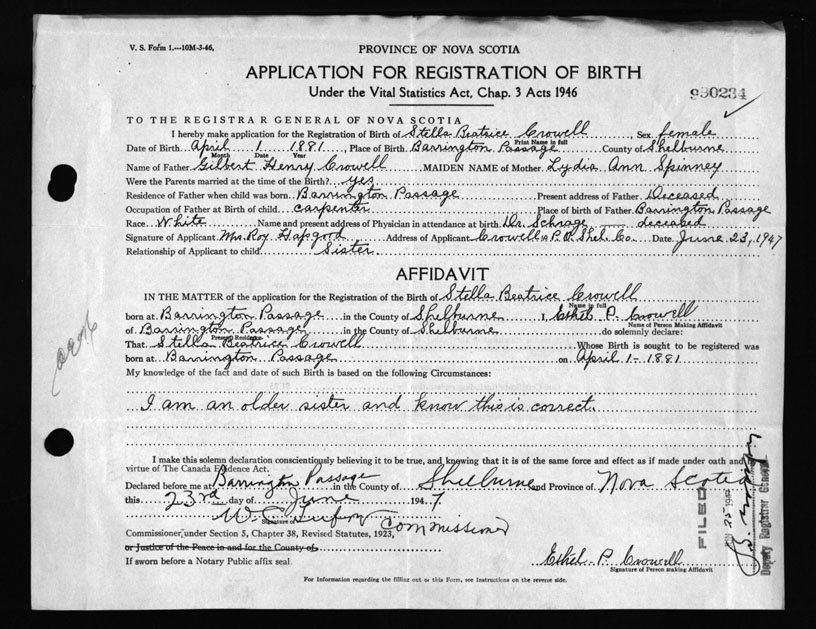 V. S. Form 1.—10M-3-46,
PROVINCE OF NOVA SCOTIA
APPLICATION FOR REGISTRATION OF BIRTH
Under the Vital Statistics Act, Chap. 3 Acts 1946
930234
TO THE REGISTRAR GENERAL OF NOVA SCOTIA
I hereby make application for the Registration of Birth of Stella Beatrice Crowell, Sex female
Print Name in full
Date of Birth April 1 1881, Place of Birth Barrington Passage County of Shelburne
Month Date Year
Name of Father Gilbert Henry Crowell MAIDEN NAME of Mother Lydia Ann Spinney
Were the Parents married at the time of the Birth? yes
Residence of Father when child was born Barrington Passage Present address of Father Deceased
Occupation of Father at Birth of child carpenter Place of birth of Father Barrington Passage
Race White Name and present address of Physician in attendance at birth Dr. Schrage — deceased
Signature of Applicant Mrs. Roy Hapgood Address of Applicant Crowell P.O. Shel. Co. Date June 23, 1947
Relationship of Applicant to child Sister
AFFIDAVIT
IN THE MATTER of the application for the Registration of the Birth of Stella Beatrice Crowell
Name in full
born at Barrington Passage in the County of Shelburne I, Ethel P. Crowell
Name of Person Making Affidavit
of Barrington Passage in the County of Shelburne do solemnly declare:
Present Residence
That Stella Beatrice Crowell Whose Birth is sought to be registered was
born at Barrington Passage on April 1 - 1881
My knowledge of the fact and date of such Birth is based on the following Circumstances:
I am an older sister and know this is correct.
I make this solemn declaration conscientiously believing it to be true, and knowing that it is of the same force and effect as if made under oath and by
virtue of The Canada Evidence Act.
Declared before me at Barrington Passage in the County of Shelburne and Province of Nova Scotia
this 23rd day of June 1947
Commissioner
Signature of
Commissioner under Section 5, Chapter 38, Revised Statutes, 1923,
or Justice of the Peace in and for the County of
If sworn before a Notary Public affix seal
Ethel P. Crowell
Signature of Person making Affidavit
For Information regarding the filling out of this Form, see Instructions on the reverse side.
FILED
Deputy Registrar General